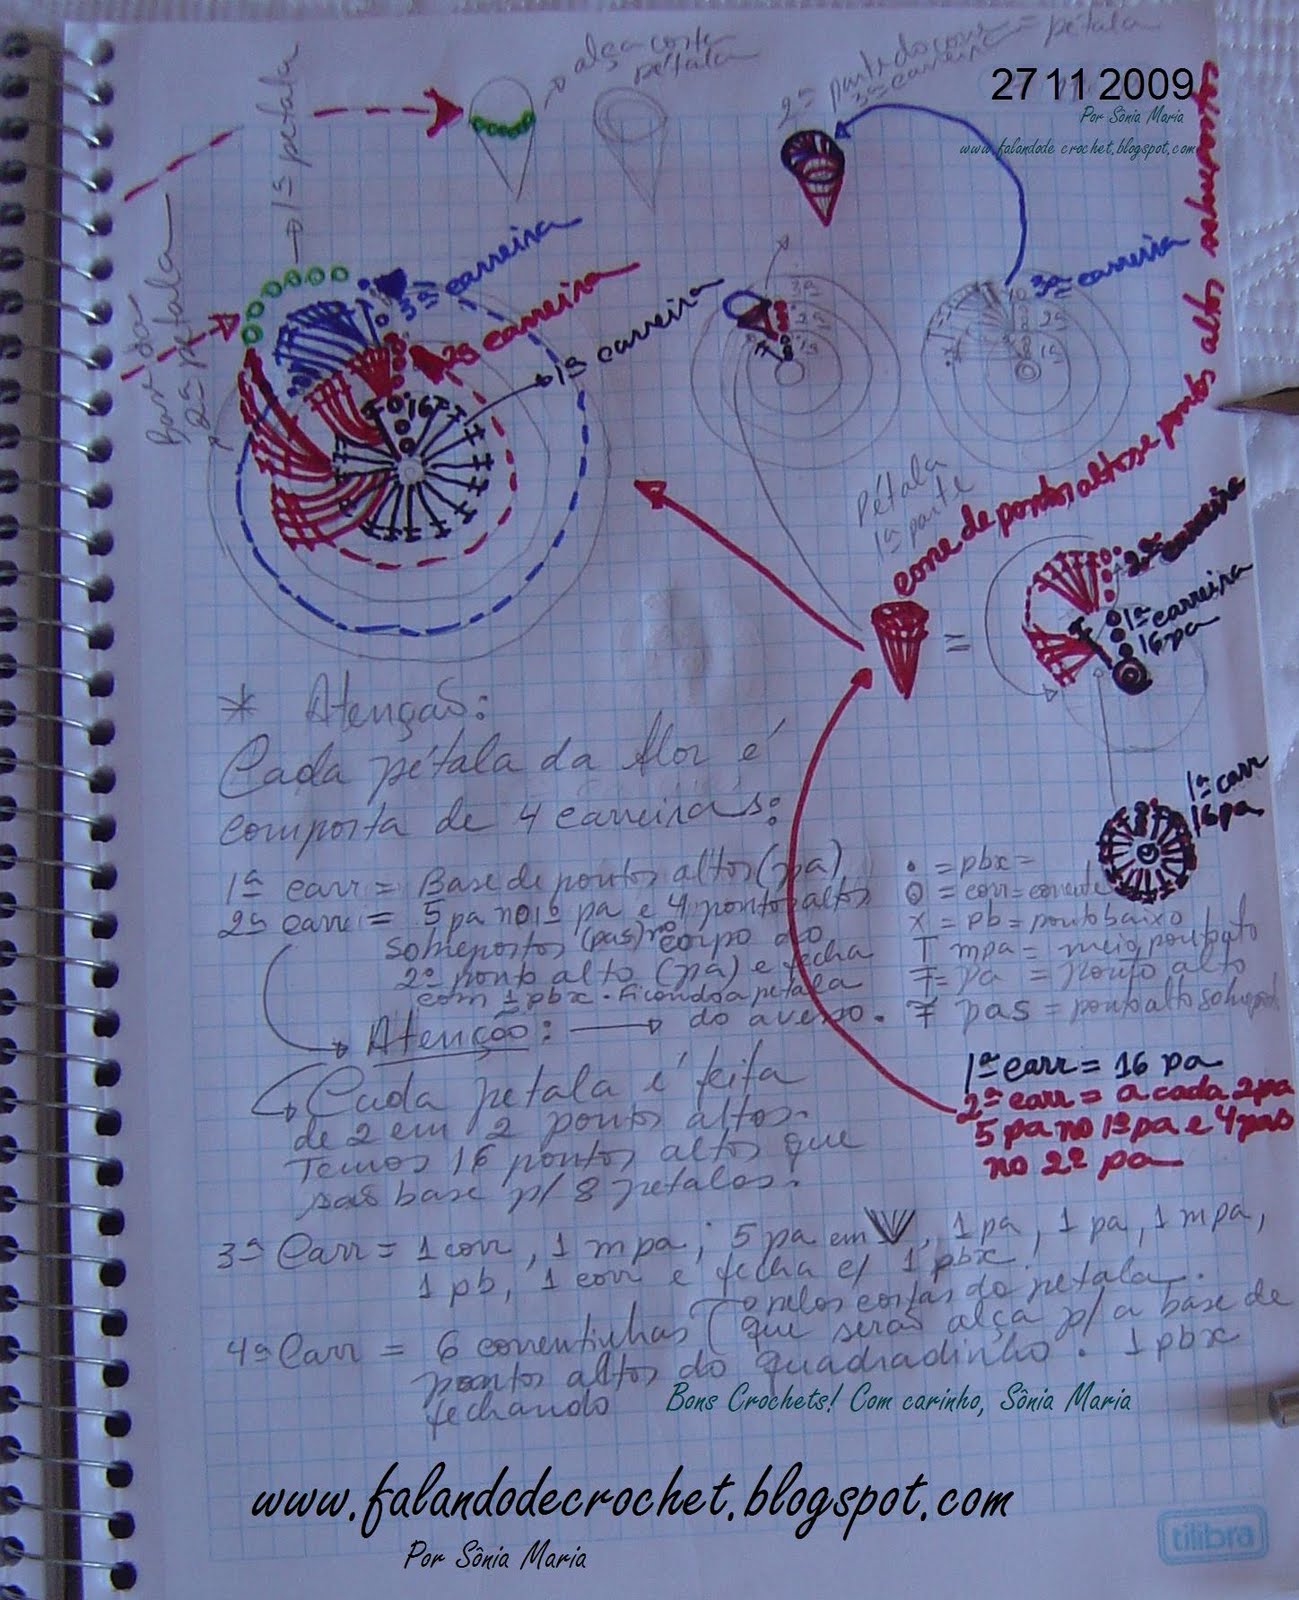 alça costa
pétala
pétala
3ª carreira
27 11 2009
Por Sônia Maria
www.falandode crochet.blogspot.com
1ª petala
2ª petala
3ª carreira
2ª carreira
1ª carreira
16
3ª
2ª
1ª
3ª carreira
2ª
1ª
Pétala
1ª parte
cone de pontos altos e pontos altos sobrepostos
2ª carreira
1ª carreira
16 pa
1ª carr
16 pa
* Atenção:
Cada pétala da flor é
composta de 4 carreiras:
1ª carr = Base de pontos altos (pa)
2ª carr = 5 pa no 1º pa e 4 pontos altos
sobrepostos (pas) no corpo do
2º ponto alto (pa) e fecha
com 1 pbx. Ficando a petala
do avesso.
Atenção:
Cada petala é feita
de 2 em 2 pontos altos.
Temos 16 pontos altos que
são base p/ 8 petalas.
• = pbx =
O = corr = corrente
X = pb = ponto baixo
T mpa = meio ponto alto
Ŧ = pa = ponto alto
Ŧ pas = ponto alto sobrepost
1ª carr = 16 pa
2ª carr = a cada 2 pa
5 pa no 1º pa e 4 pas
no 2º pa
3ª Carr = 1 corr, 1 mpa, 5 pa em V, 1 pa, 1 pa, 1 mpa,
1 pb, 1 corr e fecha c/ 1 pbx
pelas costas da petala.
4ª Carr = 6 correntinhas (que serão alça p/ a base de
pontos altos do quadradinho. 1 pbx
fechando
Bons Crochets! Com carinho, Sônia Maria
www.falandodecrochet.blogspot.com
Por Sônia Maria
tilibra